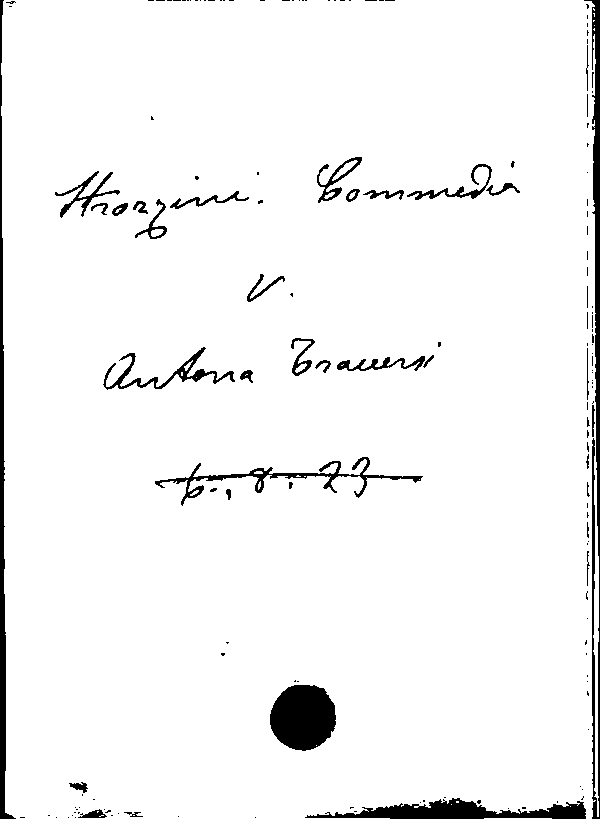 Strozzini. Commedia
V.
Antona Traversi
6., 8. 23